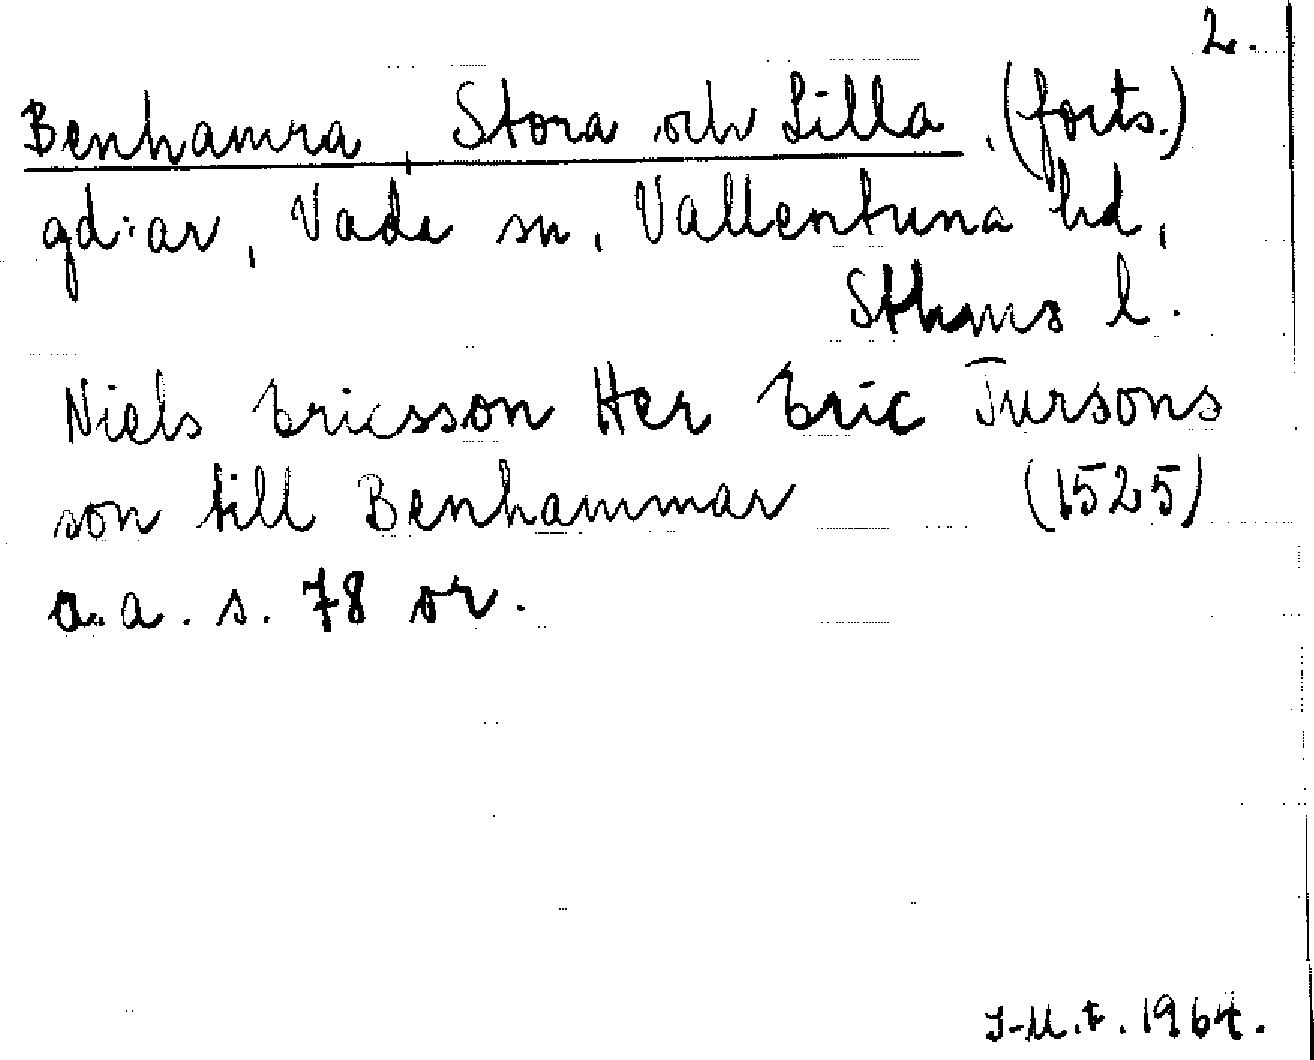 2.
Benhamra, Stora och Lilla, (forts.)
gd:ar, Vada sn, Vallentuna hd,
Sthms l.
Niels Ericsson Her Eric Tursons
son till Benhammar (1525)
a.a. s. 78 or.
I-M.F. 1964.